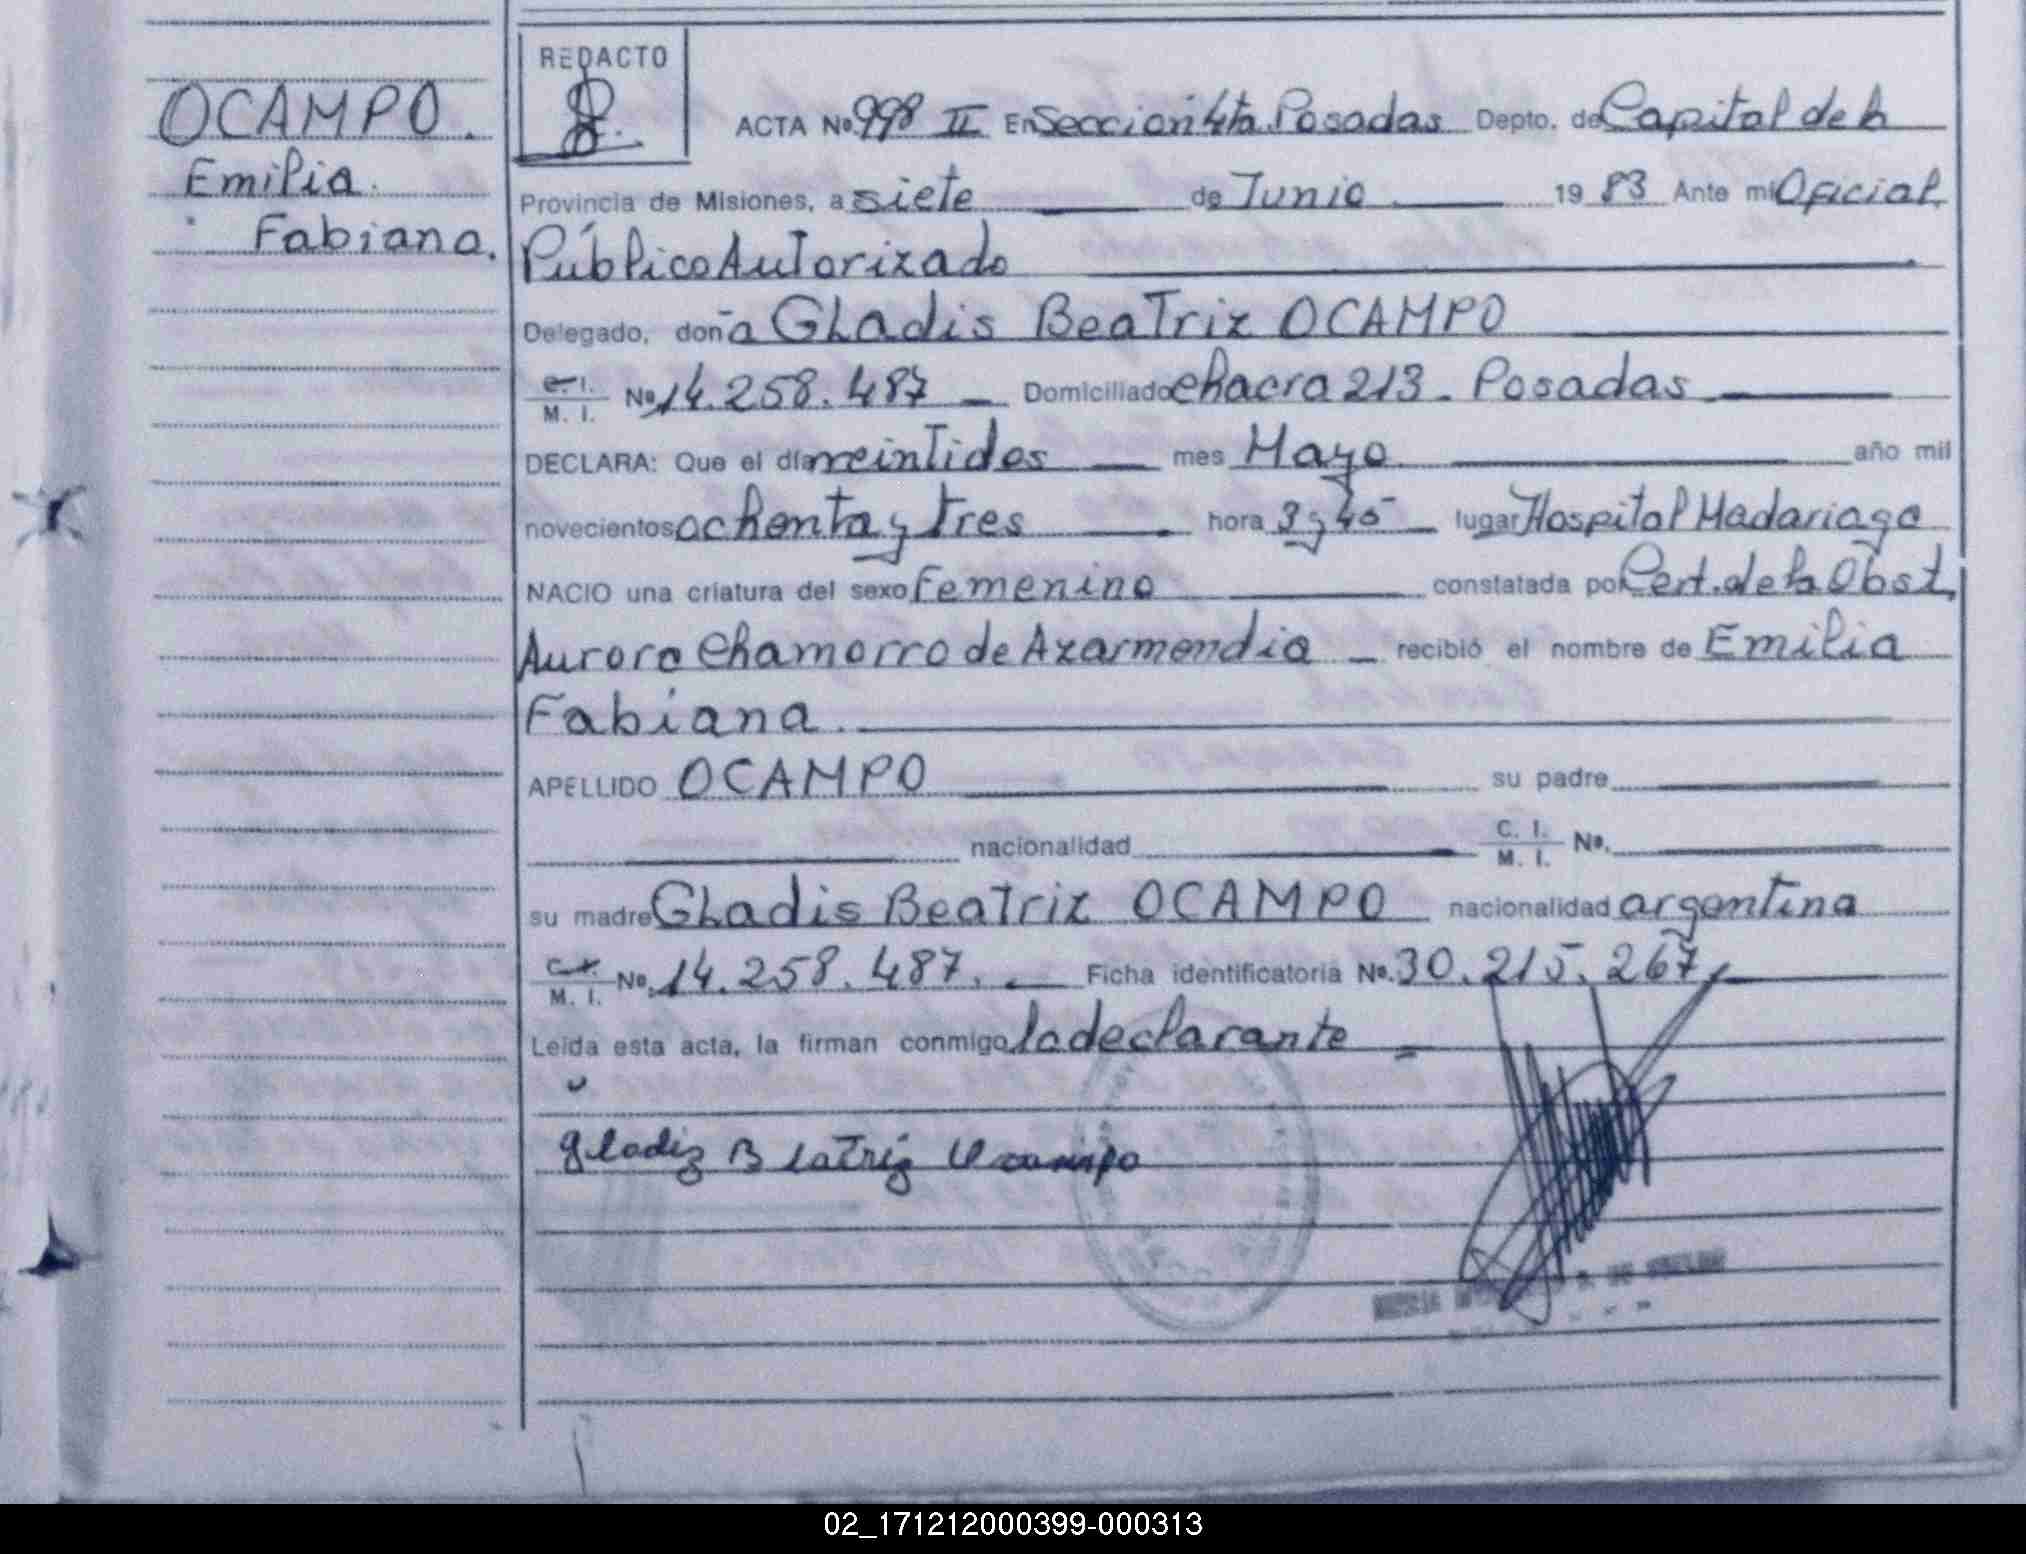 OCAMPO.
Emilia
Fabiana.
REDACTO
ACTA Nº 998 II En Seccion 4ta. Posadas Depto. de Capital de la
Provincia de Misiones, a siete de Junio 19 83 Ante mi Oficial
Público Autorizado
Delegado, doña Gladis Beatriz OCAMPO
C. I. / M. I. Nº 14.258.487 Domiciliado chacra 213 - Posadas
DECLARA: Que el día veintidos mes Mayo año mil
novecientos ochenta y tres hora 3 y 45 lugar Hospital Madariaga
NACIO una criatura del sexo femenino constatada por Cert. de la Obst.
Aurora Chamorro de Azarmendia recibió el nombre de Emilia
Fabiana.
APELLIDO OCAMPO su padre
nacionalidad C. I. / M. I. Nº.
su madre Gladis Beatriz OCAMPO nacionalidad argentina
C. I. / M. I. Nº. 14.258.487. Ficha identificatoria Nº. 30.215.267
Leída esta acta, la firman conmigo la declarante
gladiz Beatriz Ocampo
02_171212000399-000313